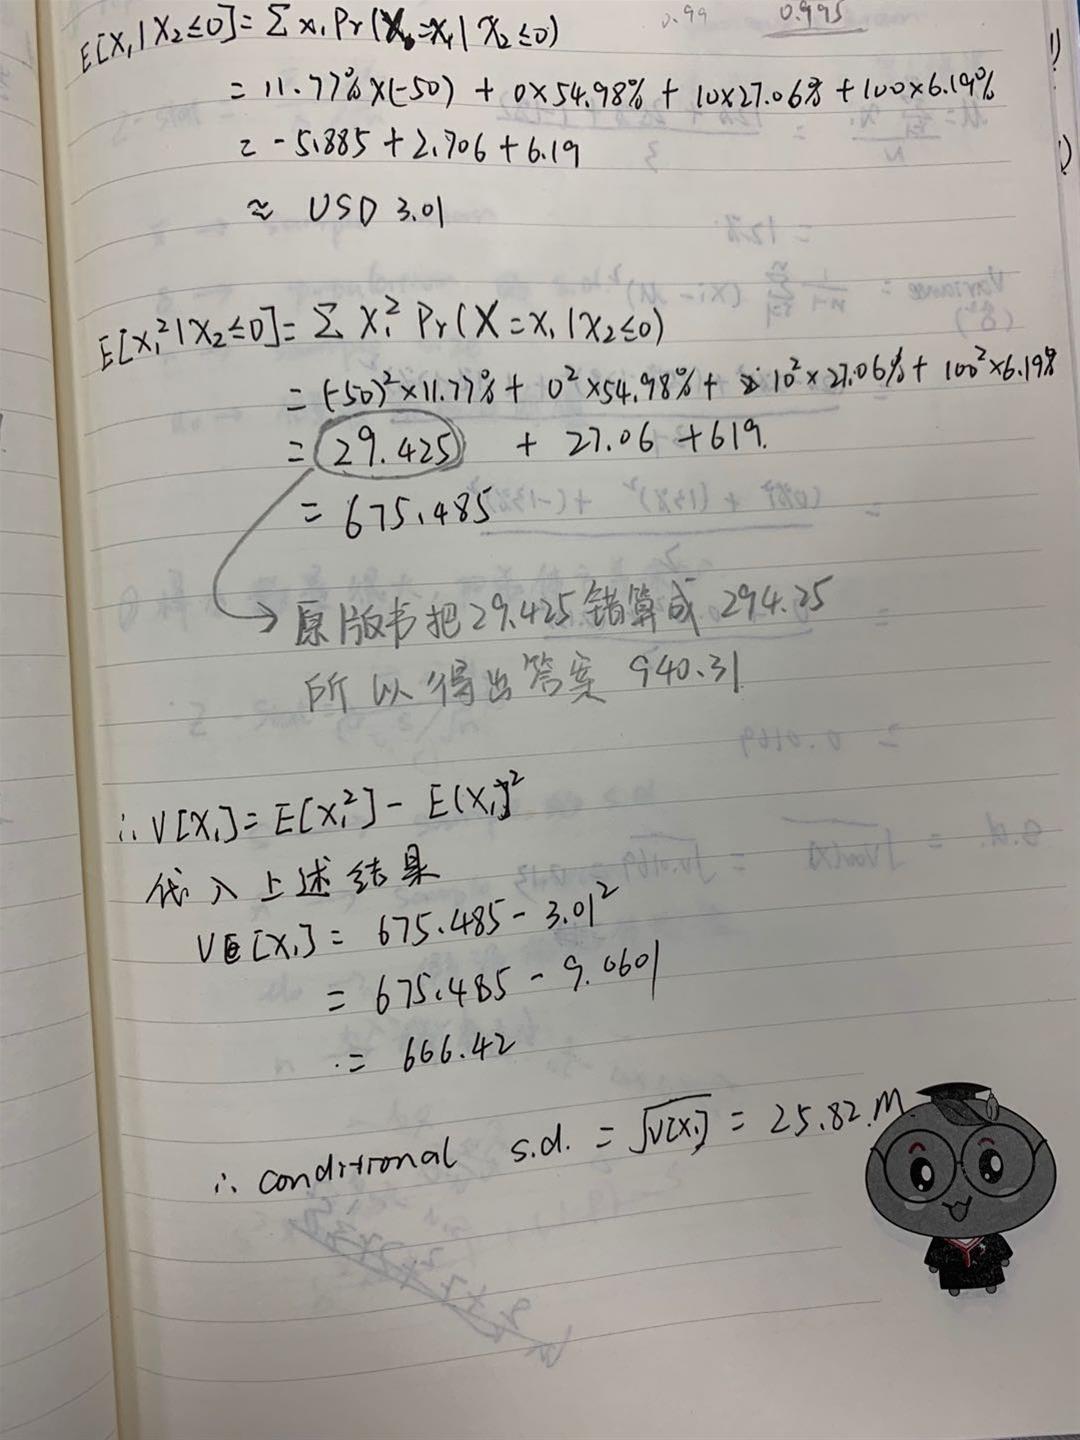 0.99 0.995
E[X₁|X₂≤0]= Σ x₁ Pr(X₁=x₁| X₂≤0)
= 11.77%×(-50) + 0×54.98% + 10×27.06% + 100×6.19%
= -5.885 + 2.706 + 6.19
≈ USD 3.01
E[X₁²|X₂≤0]= Σ X₁² Pr(X=X₁|X₂≤0)
= (-50)²×11.77% + 0²×54.98% + 10²×27.06% + 100²×6.19%
= 29.425 + 27.06 + 619.
= 675.485
→ 原版书把29.425错算成 294.25
所以得出答案 940.31
∴ V[X₁]= E[X₁²] - E(X₁]²
代入上述结果
V[X₁] = 675.485 - 3.01²
= 675.485 - 9.0601
= 666.42
∴ conditional s.d. = √V[X₁] = 25.82.M